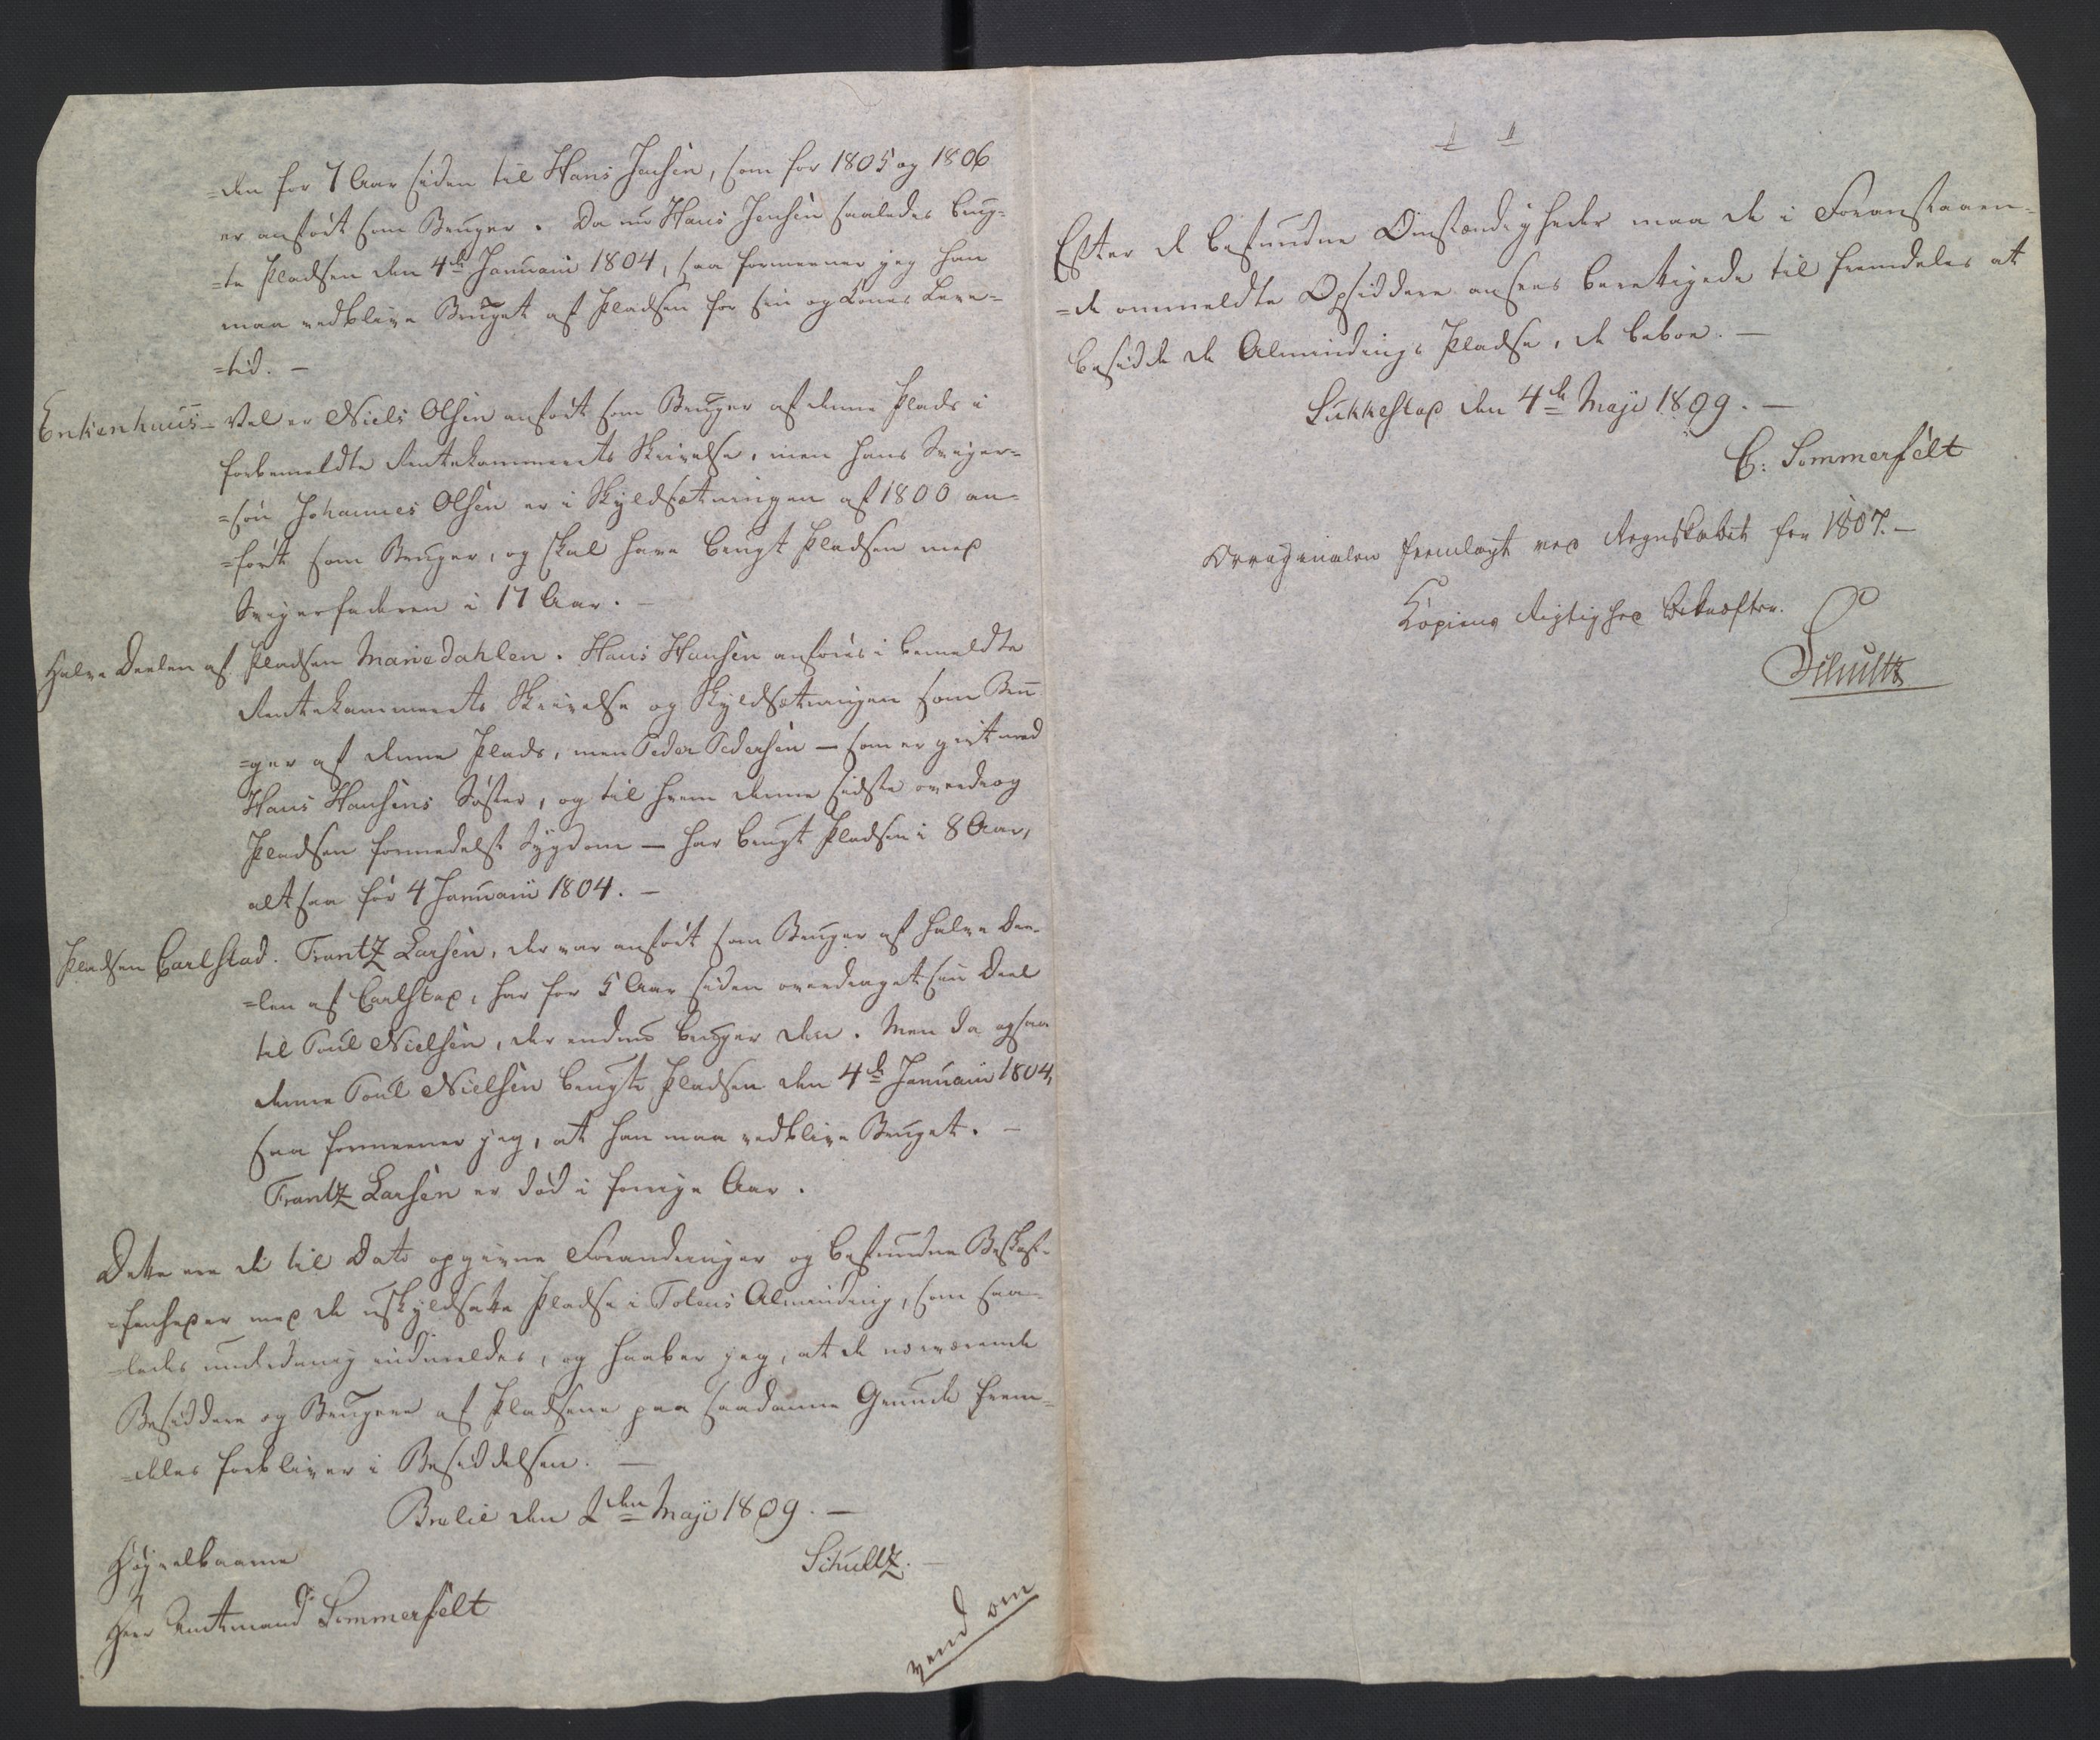 =den for 7 Aar siden til Hans Jensen, som for 1805 og 1806
er anført som Bruger. Da nu Hans Jensen saaledes brug-
=te Pladsen den 4de Januarii 1804, saa formeener jeg han
maa vedblive Bruget af Pladsen for sin og Kones Leve-
=tid. —
Enkenhuus — Vel er Niels Olsen anført som Bruger af denne Plads i
forbemeldte Rentekammerets Skrivelse, men hans Sviger-
=søn Johannes Olsen er i Skyldsætningen af 1800 an-
=ført som Bruger, og skal have brugt Pladsen med
Svigerfaderen i 17 Aar. —
Halve Deelen af Pladsen Mariedahlen. Hans Hansen anføres i bemeldte
Rentekammerets Skrivelse og Skyldsætningen som Bru
=ger af denne Plads, men Peder Pedersen — som er givt med
Hans Hansens Søster, og til hvem denne sidste overdrog
Pladsen formedelst Sygdom — har brugt Pladsen i 8 Aar,
altsaa før 4 Januarii 1804. —
Pladsen Carlstad. Frantz Larsen, der var anført som Bruger af halve Dee-
=len af Carlstad, har for 5 Aar siden overdraget sin Deel
til Poul Nielsen, der endnu bruger den. Men da ogsaa
denne Poul Nielsen brugte Pladsen den 4de Januarii 1804,
saa formeener jeg, at han maa vedblive Bruget. —
Frantz Larsen er død i forrige Aar.
Dette ere de til Dato opgivne Forandringer og befundne Beskaf-
=fenheder med de uskyldsatte Pladse i Totens Alminding, som saa-
=ledes underdanig indmeldes, og haaber jeg, at de nærværende
Besiddere og Brugere af Pladsene paa saadanne Grunde frem-
=deles forbliver i Besiddelsen. —
Brelie den 2den Maji 1809. —
Høyvelbaarne
Schultz. —
Herr Amtmand Sommerfelt
vend om
Efter de befundne Omstændigheder maa de i Foranstaaen-
=de ommeldte Opsiddere ansees berettigede til fremdeles at
besidde de Almindings Pladse, de beboe. —
Sukkestad den 4de Maji 1809. —
C: Sommerfelt
Orriginalen fremlagt ved Regnskabet for 1807. —
Kopiens Rigtighed Bekræfter.
Schultz